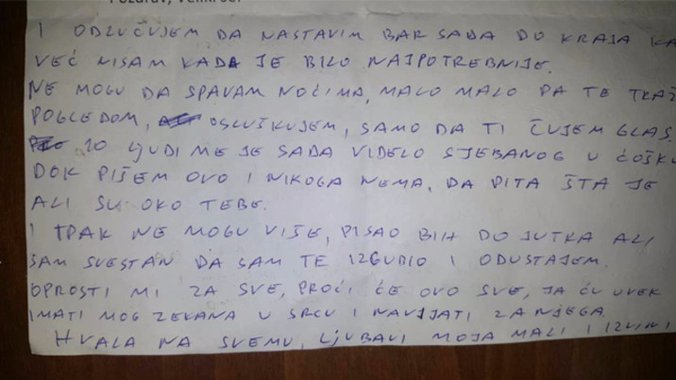 Pozdrav, Veliki
I ODLUČUJEM DA NASTAVIM BAR SADA DO KRAJA KA
VEĆ NISAM KADA JE BILO NAJPOTREBNIJE.
NE MOGU DA SPAVAM NOĆIMA, MALO MALO PA TE TRAŽ
POGLEDOM, OSLUŠKUJEM, SAMO DA TI ČUJEM GLAS.
20 LJUDI ME JE SADA VIDELO SJEBANOG U ĆOŠKU
DOK PIŠEM OVO I NIKOGA NEMA, DA PITA ŠTA JE
ALI SU OKO TEBE.
I IPAK NE MOGU VIŠE, PISAO BIH DO JUTRA ALI
SAM SVESTAN DA SAM TE IZGUBIO I ODUSTAJEM.
OPROSTI MI ZA SVE, PROĆI ĆE OVO SVE, JA ĆU UVEK
IMATI MOG ZEKANA U SRCU I NAVIJATI ZA NJEGA.
HVALA NA SVEMU, LJUBAVI MOJA MALI I IZVINI